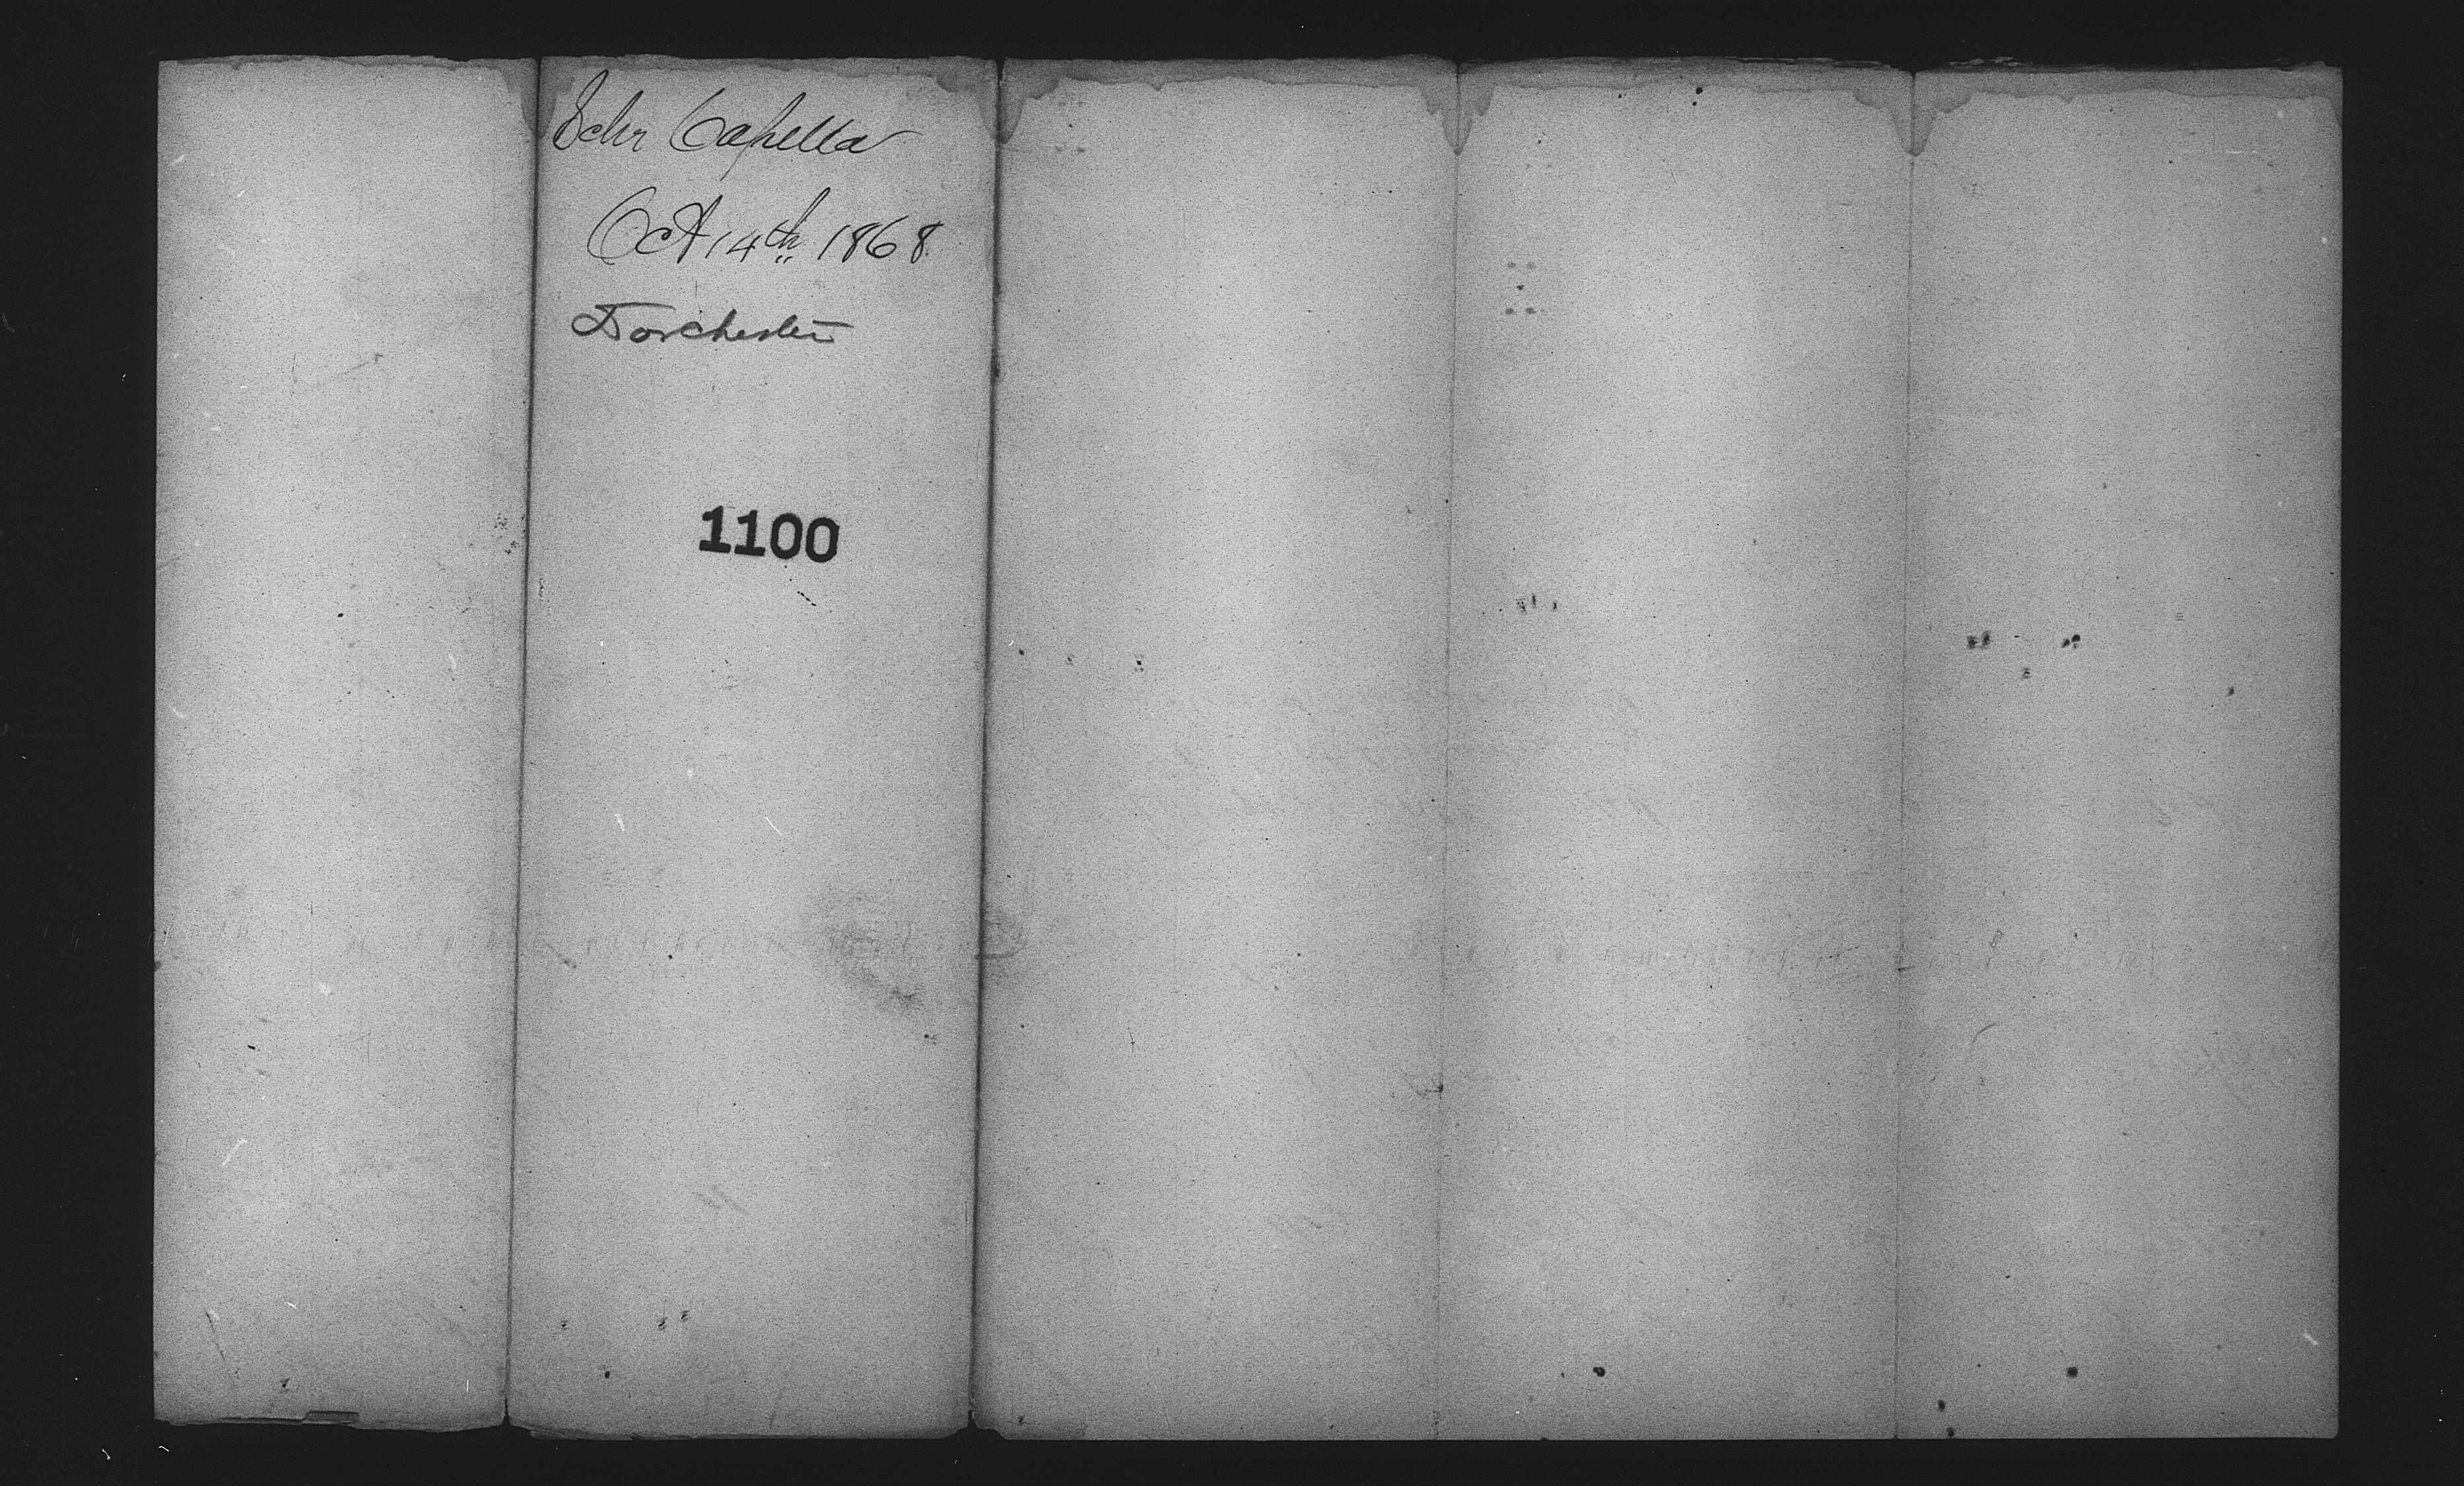 Schr Capella
Oct 14th 1868
Dorchester
1100